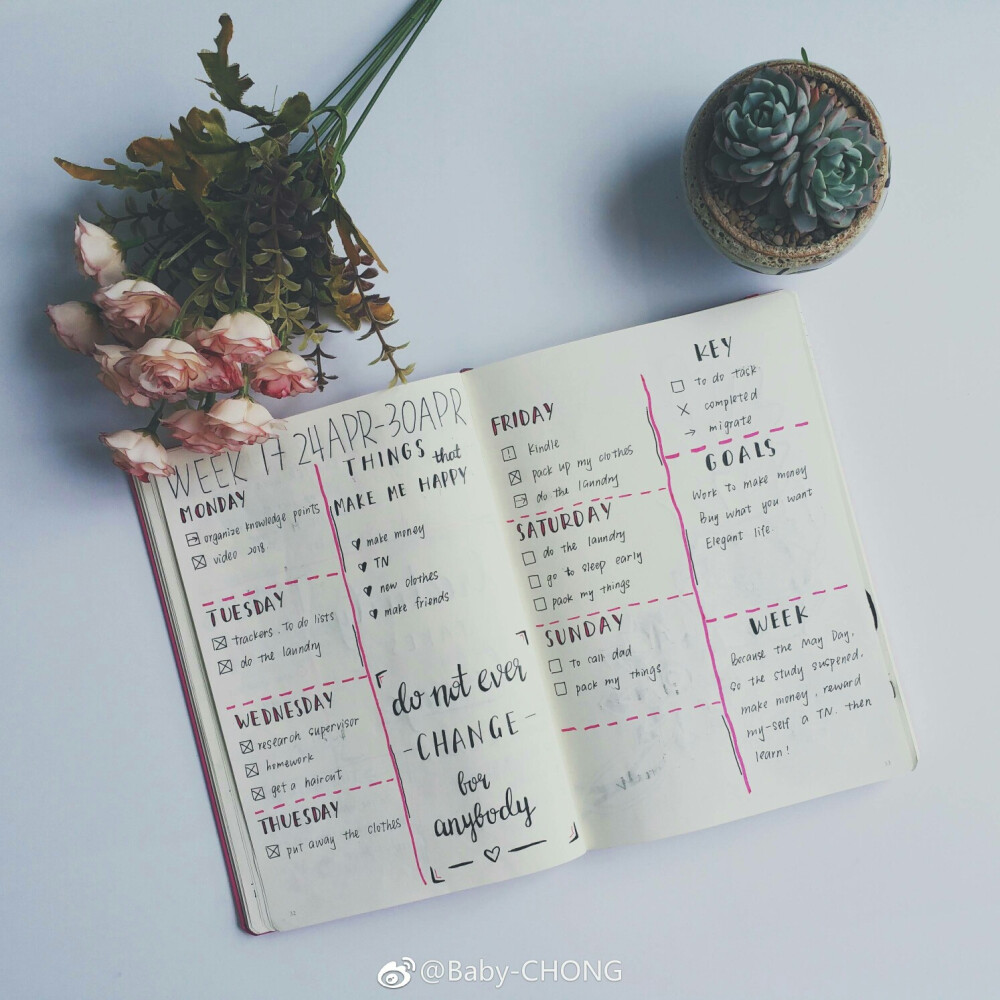 WEEK 17 24APR-30APR
MONDAY
organize knowledge points
video 2018
TUESDAY
trackers. To do lists
do the laundry
WEDNESDAY
research supervisor
homework
get a haircut
THUESDAY
put away the clothes
THINGS that
MAKE ME HAPPY
make money
TN
new clothes
make friends
do not ever
-CHANGE-
for
anybody
FRIDAY
! Kindle
pack up my clothes
do the laundry
SATURDAY
do the laundry
go to sleep early
pack my things
SUNDAY
To call dad
pack my things
KEY
to do task
× completed
→ migrate
GOALS
Work to make money
Buy what you want
Elegant life.
WEEK
Because the May Day.
so the study suspended.
make money. reward
my-self a TN. then
learn!
@Baby-CHONG